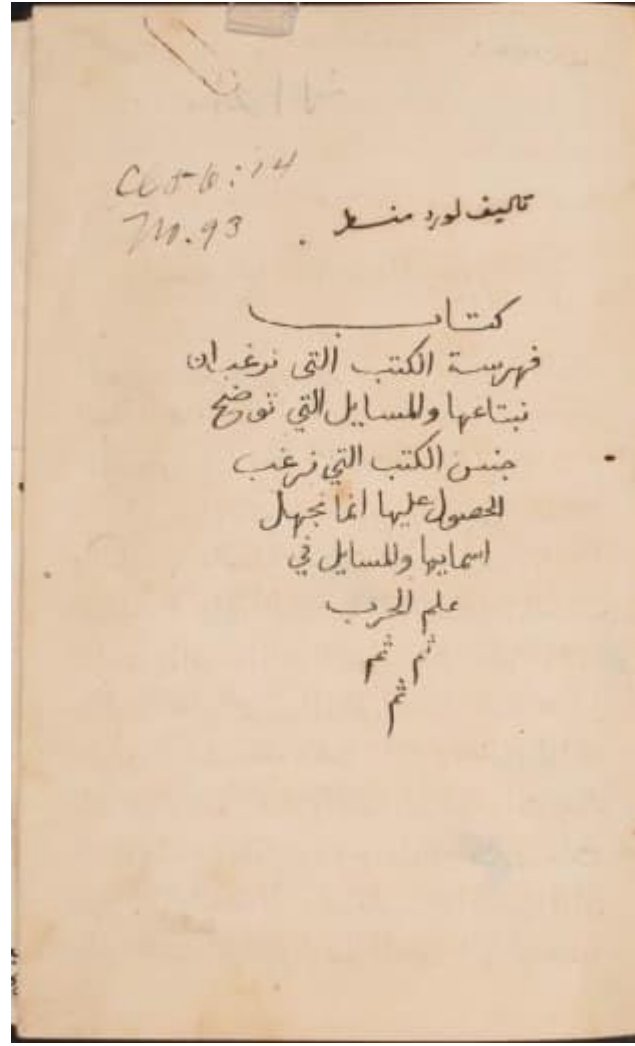 تاليف لورد منستر
كتاب
فهرسة الكتب التى نرغب ان
نبتاعها والمسايل التي توضح
جنس الكتب التي نرغب
الحصول عليها انما نجهل
اسمايها وللسايل في
علم الحرب
ثم ثم
ثم